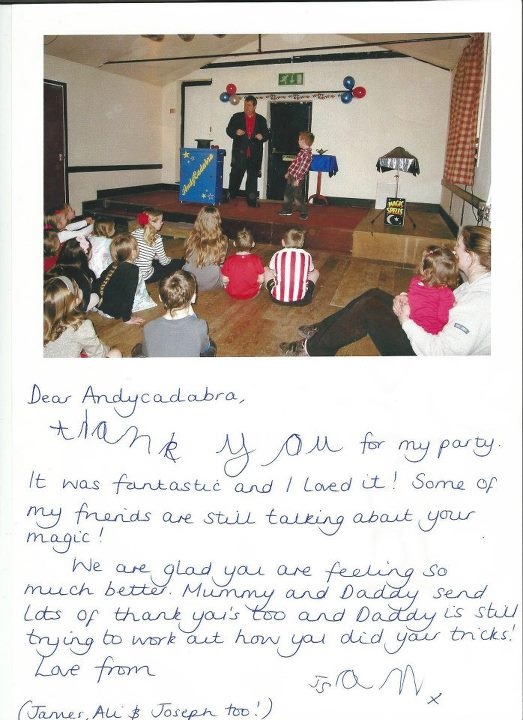 AndyCadabra
MAGIC
SPELLS
Dear Andycadabra,
thank you for my party.
It was fantastic and I loved it! Some of
my friends are still talking about your
magic!
We are glad you are feeling so
much better. Mummy and Daddy send
lots of thank you's too and Daddy is still
trying to work out how you did your tricks!
Love from
x
(James, Ali & Joseph too!)